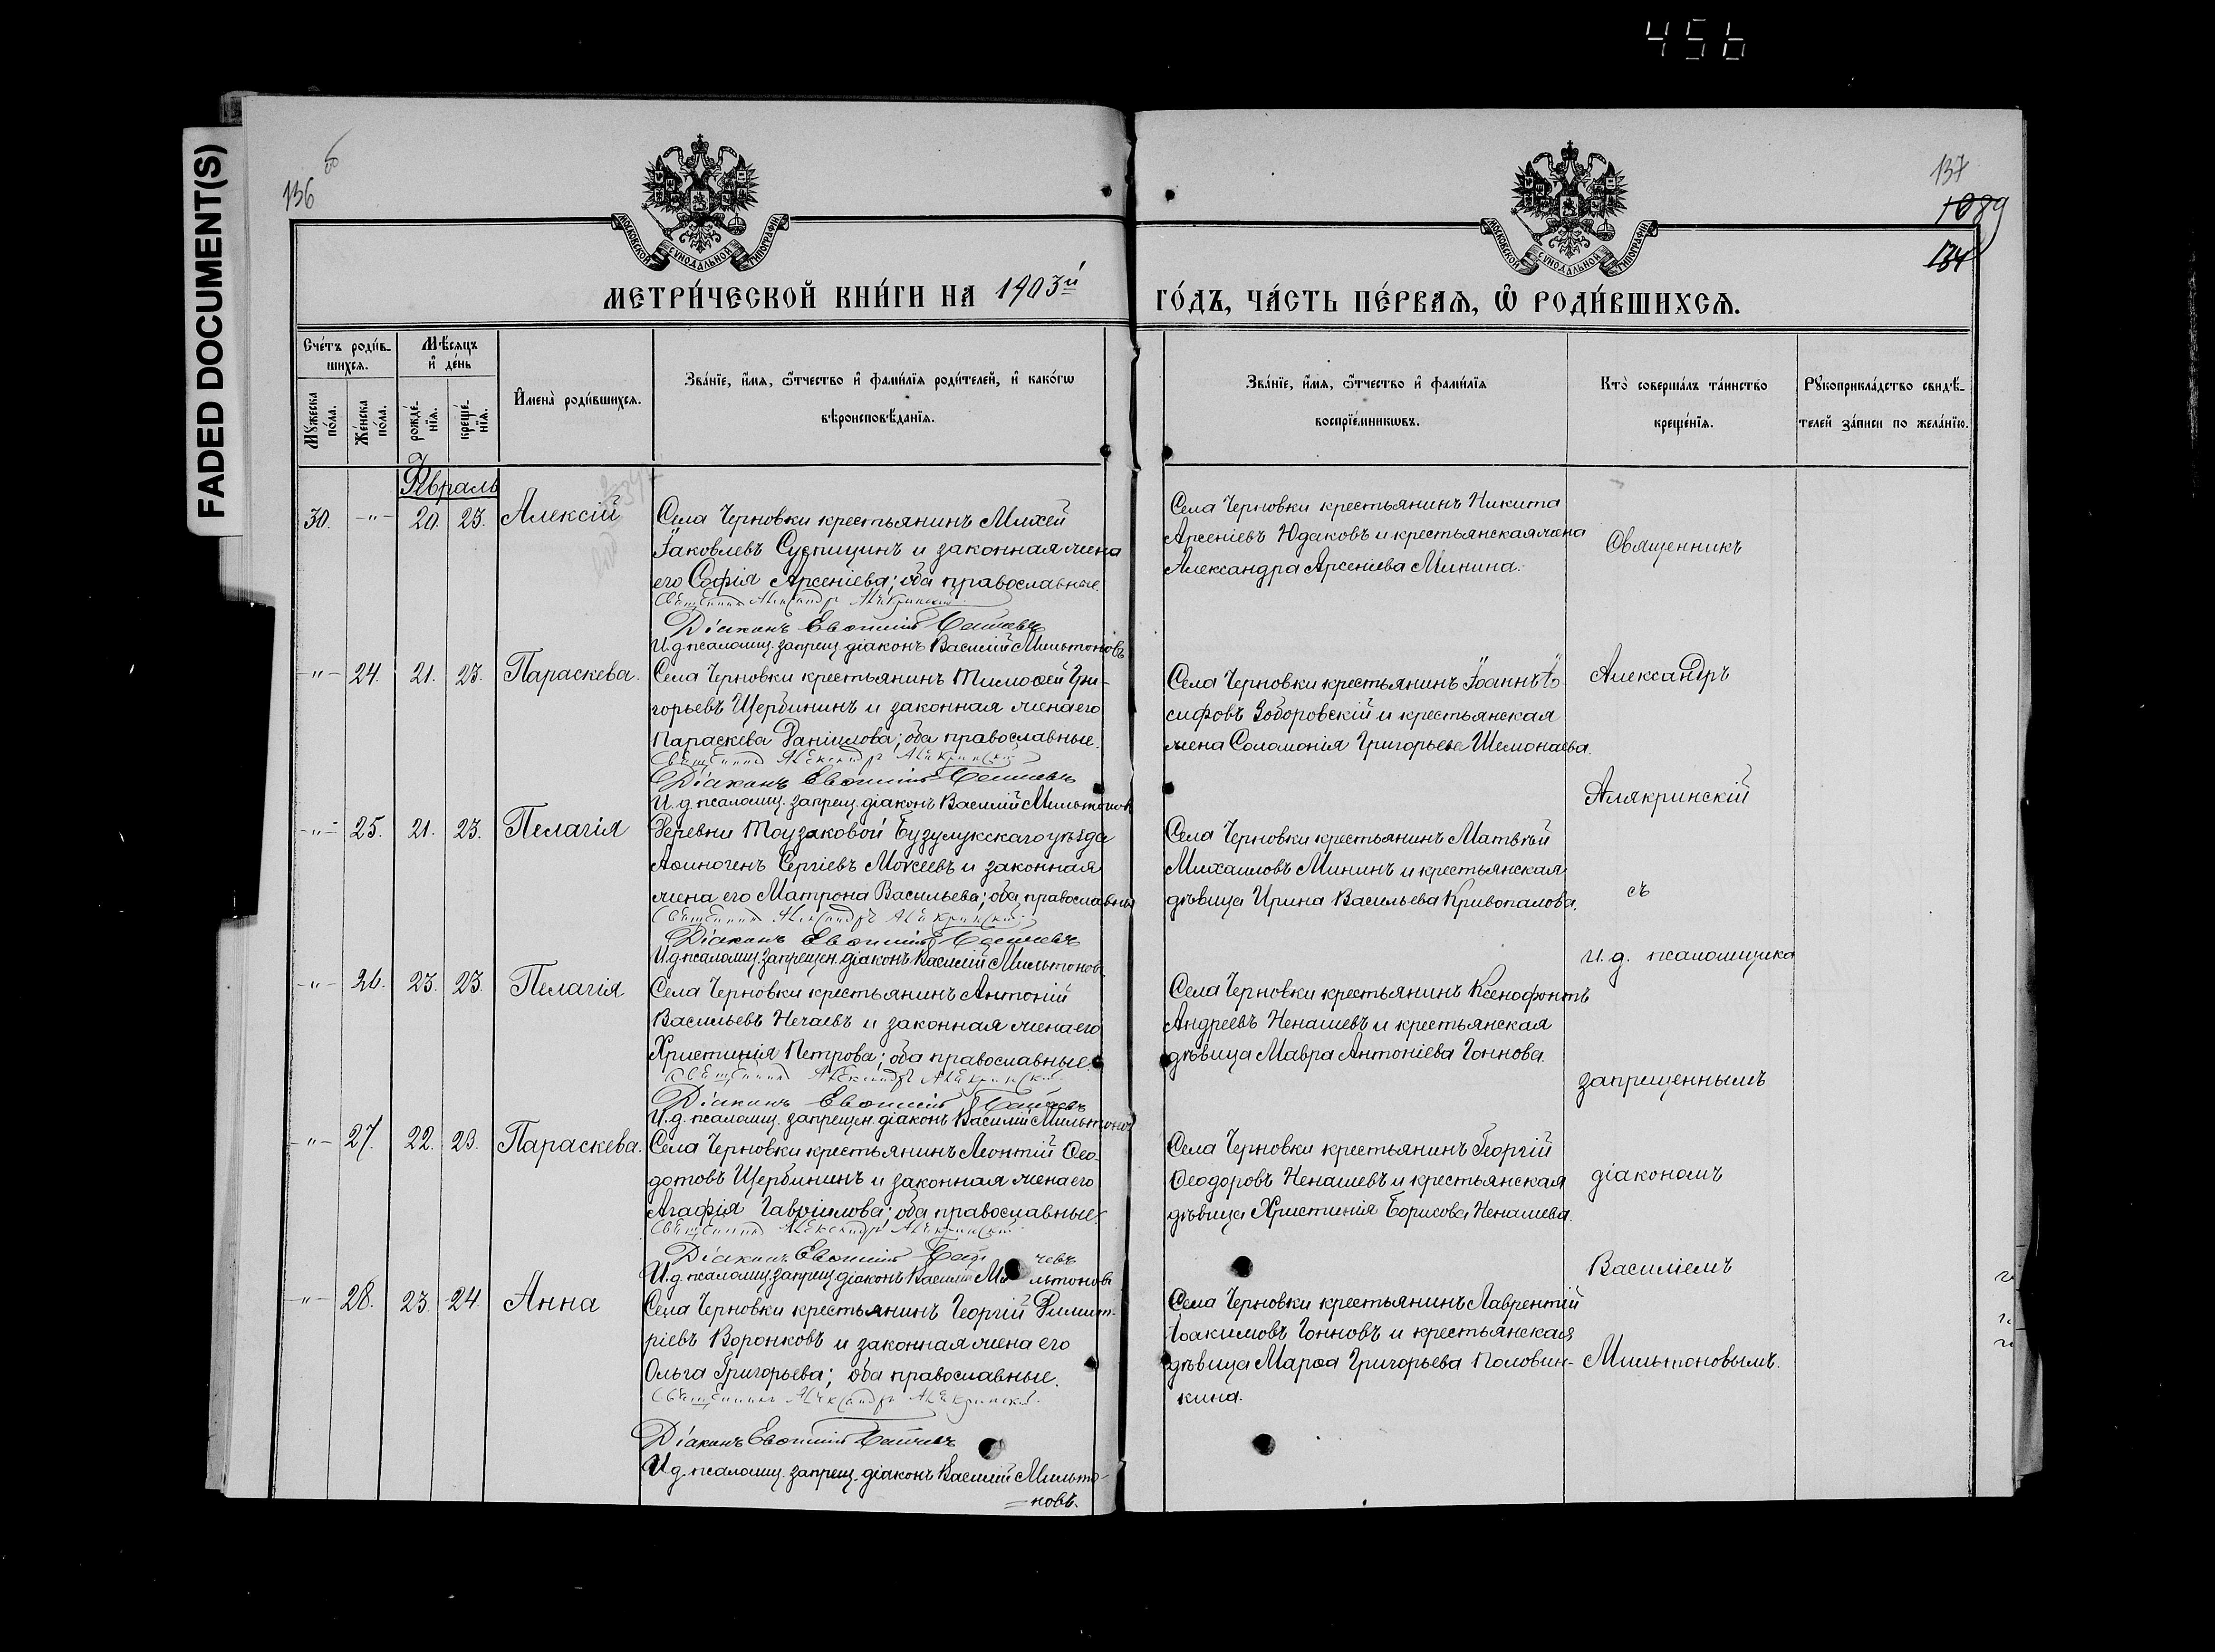 456
FADED DOCUMENT(S)
136
137
1089
134
МОСКОВСКОЙ СѴНОДАЛЬНОЙ ТИПОГРАФІИ
МОСКОВСКОЙ СѴНОДАЛЬНОЙ ТИПОГРАФІИ
МЕТРИ́ЧЕСКОЙ КНИ́ГИ НА 1903й
ГО́ДЪ, ЧА́СТЬ ПЕ́РВАѦ, Ѽ РОДИ́ВШИХСѦ.
Сче́тъ роди́в-
шихсѧ.
Мꙋ́жеска по́ла.
Же́нска по́ла.
Мѣ́сѧцъ
и҆ де́нь
рожде́-
нїѧ.
креще́-
нїѧ.
И҆мена̀ роди́вшихсѧ.
Зва́нїе, и҆́мѧ, ѻ҆́тчество и҆ фами́лїѧ роди́телей, и҆ како́гѡ
вѣроисповѣ́данїѧ.
Зва́нїе, и҆́мѧ, ѻ҆́тчество и҆ фами́лїѧ
воспрїе́мникѡвъ.
Кто̀ соверша́лъ та́инство
креще́нїѧ.
Рꙋкоприкла́дство свидѣ́-
телей за́писи по жела́нїю.
Февраль
30. -"- 20. 23. Алексій
Села Черновки крестьянинъ Михей
Іаковлевъ Сурпицинъ и законная жена
его Софія Арсеніева; оба православные.
Священникъ Александръ Алякринскій
Діаконъ Евѳимій
И.д. псаломщ. запрещ. діаконъ Василій Мильтоновъ
Села Черновки крестьянинъ Никита
Арсеніевъ Юдаковъ и крестьянская жена
Александра Арсеніева Минина.
-"- 24. 21. 23. Параскева.
Села Черновки крестьянинъ Тимоѳей Гри-
горьевъ Щербининъ и законная жена его
Параскева Даніилова; оба православные.
Священникъ Александръ Алякринскій
Діаконъ Евѳимій
И.д. псаломщ. запрещ. діаконъ Василій Мильтонов
Села Черновки крестьянинъ Іоаннъ Іо-
сифовъ Зоборовскій и крестьянская
жена Соломонія Григорьева Шемонаева.
-"- 25. 21. 23. Пелагія
Деревни Тоузаковой Бузулукскаго уѣзда
Аѳиногенъ Сергіевъ Мокеевъ и законная
жена его Матрона Васильева; оба православные
Священникъ Александръ Алякринскій
Діаконъ Евѳимій
И.д. псаломщ. запрещен. діаконъ Василій Мильтонов
Села Черновки крестьянинъ Матѳей
Михаиловъ Мининъ и крестьянская
дѣвица Ирина Васильева Кривопалова.
-"- 26. 23. 23. Пелагія
Села Черновки крестьянинъ Антоній
Васильевъ Нечаевъ и законная жена его
Христинія Петрова; оба православные.
Священникъ Александръ Алякринскій
Діаконъ Евѳимій
И.д. псаломщ. запрещен. діаконъ Василій Мильтонов
Села Черновки крестьянинъ Ксенофонтъ
Андреевъ Ненашевъ и крестьянская
дѣвица Мавра Антоніева Гоннова.
-"- 27. 22. 23. Параскева.
Села Черновки крестьянинъ Леонтій Ѳео-
дотовъ Щербининъ и законная жена его
Агафія Гавріилова; оба православные.
Священникъ Александръ Алякринскій
Діаконъ Евѳимій
И.д. псаломщ. запрещ. діаконъ Василій Мильтоновъ
Села Черновки крестьянинъ Георгій
Ѳеодоровъ Ненашевъ и крестьянская
дѣвица Христинія Борисова Ненашева.
-"- 28. 23. 24. Анна
Села Черновки крестьянинъ Георгій Димит-
ріевъ Воронковъ и законная жена его
Ольга Григорьева; оба православные.
Священникъ Александръ Алякринскій
Діаконъ Евѳимій
И.д. псаломщ. запрещ. діаконъ Василій Мильто-
=новъ.
Села Черновки крестьянинъ Лаврентій
Іоакимовъ Гонновъ и крестьянская
дѣвица Марѳа Григорьева Половин-
кина.
Священникъ
Александръ
Алякринскій
съ
и.д. псаломщика
запрещеннымъ
діакономъ
Василіемъ
Мильтоновымъ.